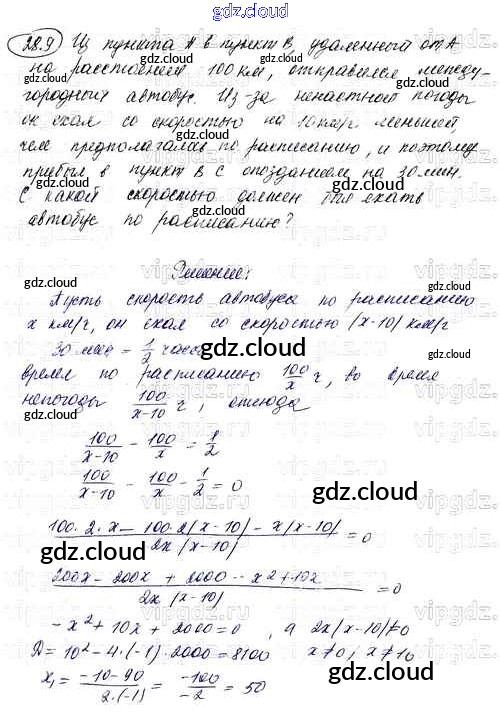 gdz.cloud
28.9 Из пункта А в пункт В, удаленный от А
на расстоянием 100 км, отправился между-
городный автобус. Из-за ненастной погоды
он ехал со скоростью на 10 км/г меньшей,
чем предполагалось по расписанию, и поэтому
прибыл в пункт В с опозданием на 30 мин.
С какой скоростью должен был ехать
автобус по расписанию?
Решение:
Пусть скорость автобуса по расписанию
x км/г, он ехал со скоростью (x-10) км/г
30 мин = 1/2 часа
время по расписанию 100/x г, во время
непогоды 100/(x-10) г, отсюда
100/(x-10) - 100/x = 1/2
100/(x-10) - 100/x - 1/2 = 0
(100·2·x - 100·2(x-10) - x(x-10))/(2x(x-10)) = 0
(200x - 200x + 2000 - x²+10x)/(2x(x-10)) = 0
-x² + 10x + 2000 = 0, а 2x(x-10)≠0
D = 10² - 4·(-1)·2000 = 8100 x≠0, x≠10
x₁ = (-10-90)/(2·(-1)) = -100/-2 = 50
gdz.cloud